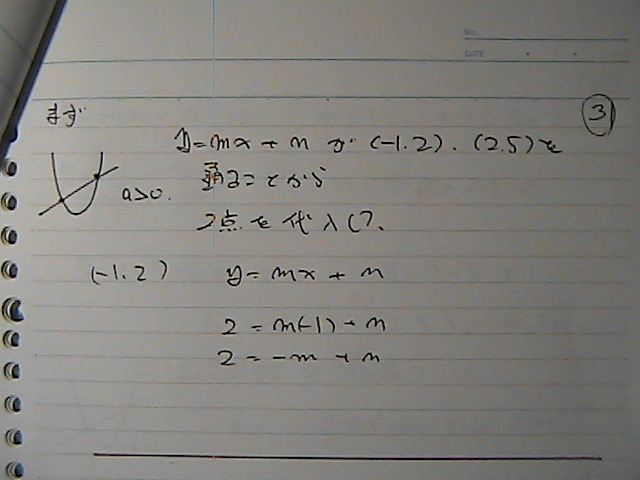 No.
DATE
③
まず
y=mx+n が (-1.2).(2.5)を
a>0.
通ることから
2点を代入して、
(-1.2) y=mx+n
2=m(-1)+n
2=-m+n